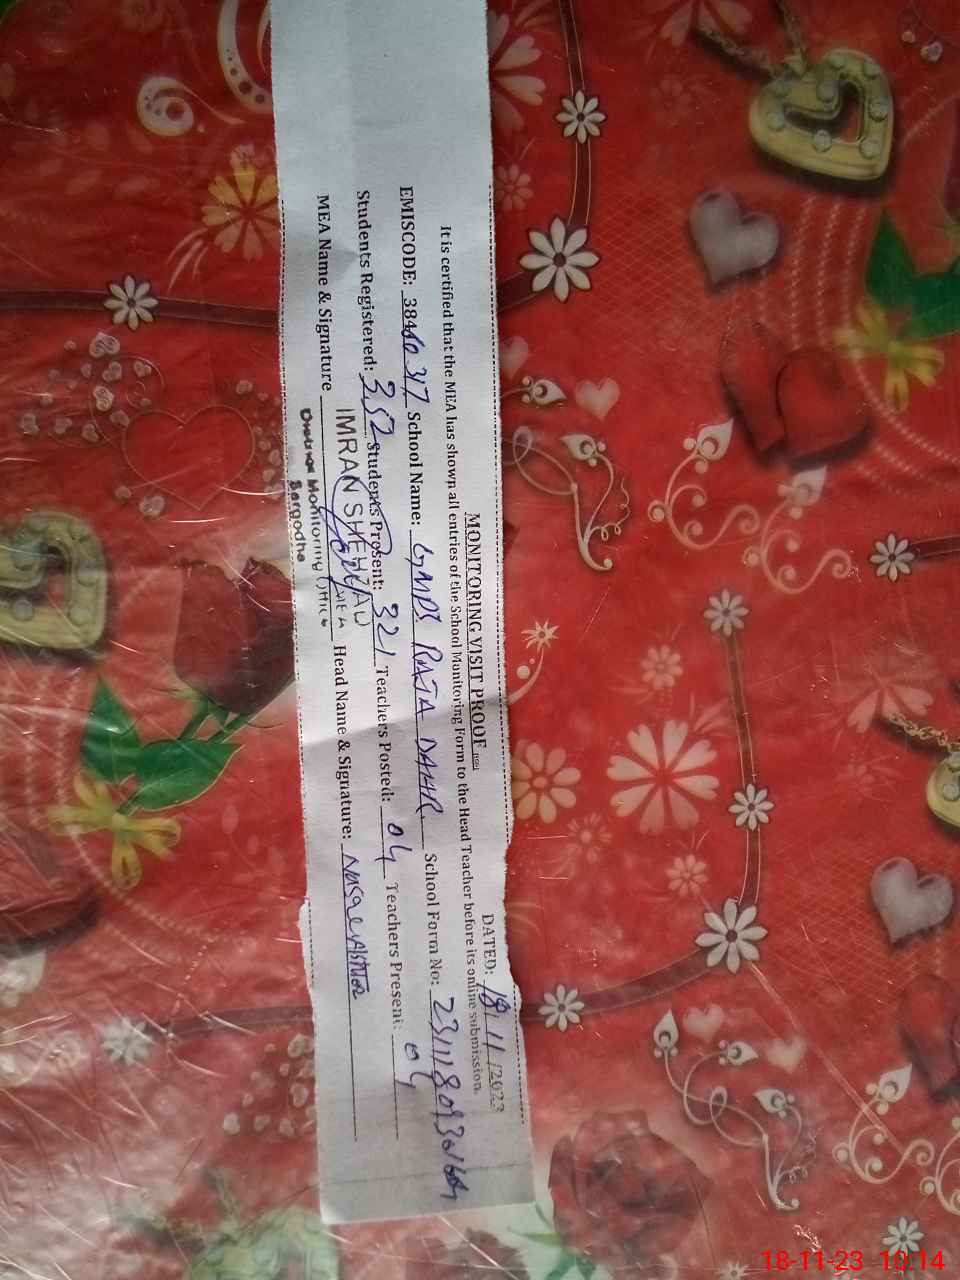 MONITORING VISIT PROOF
DATED: 18/11/2023
It is certified that the MEA has shown all entries of the School Monitoring Form to the Head Teacher before its online submission.
EMISCODE: 38440317 School Name: GMPS RAJA DAHR School Form No:
Students Registered: 352 Students Present: 321 Teachers Posted: 04 Teachers Present: 04
MEA Name & Signature IMRAN SHEHZAD Head Name & Signature:
MEA
District Monitoring Office
Sargodha
18-11-23 10:14